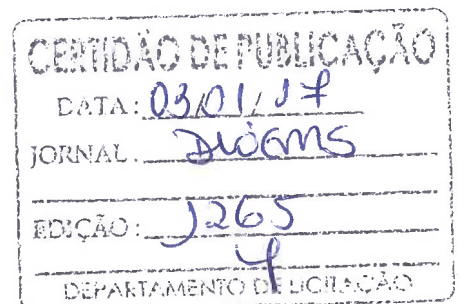 CERTIDÃO DE PUBLICAÇÃO
DATA: 03/01/17
JORNAL.
EDIÇÃO: 1265
DEPARTAMENTO DE LICITAÇÃO